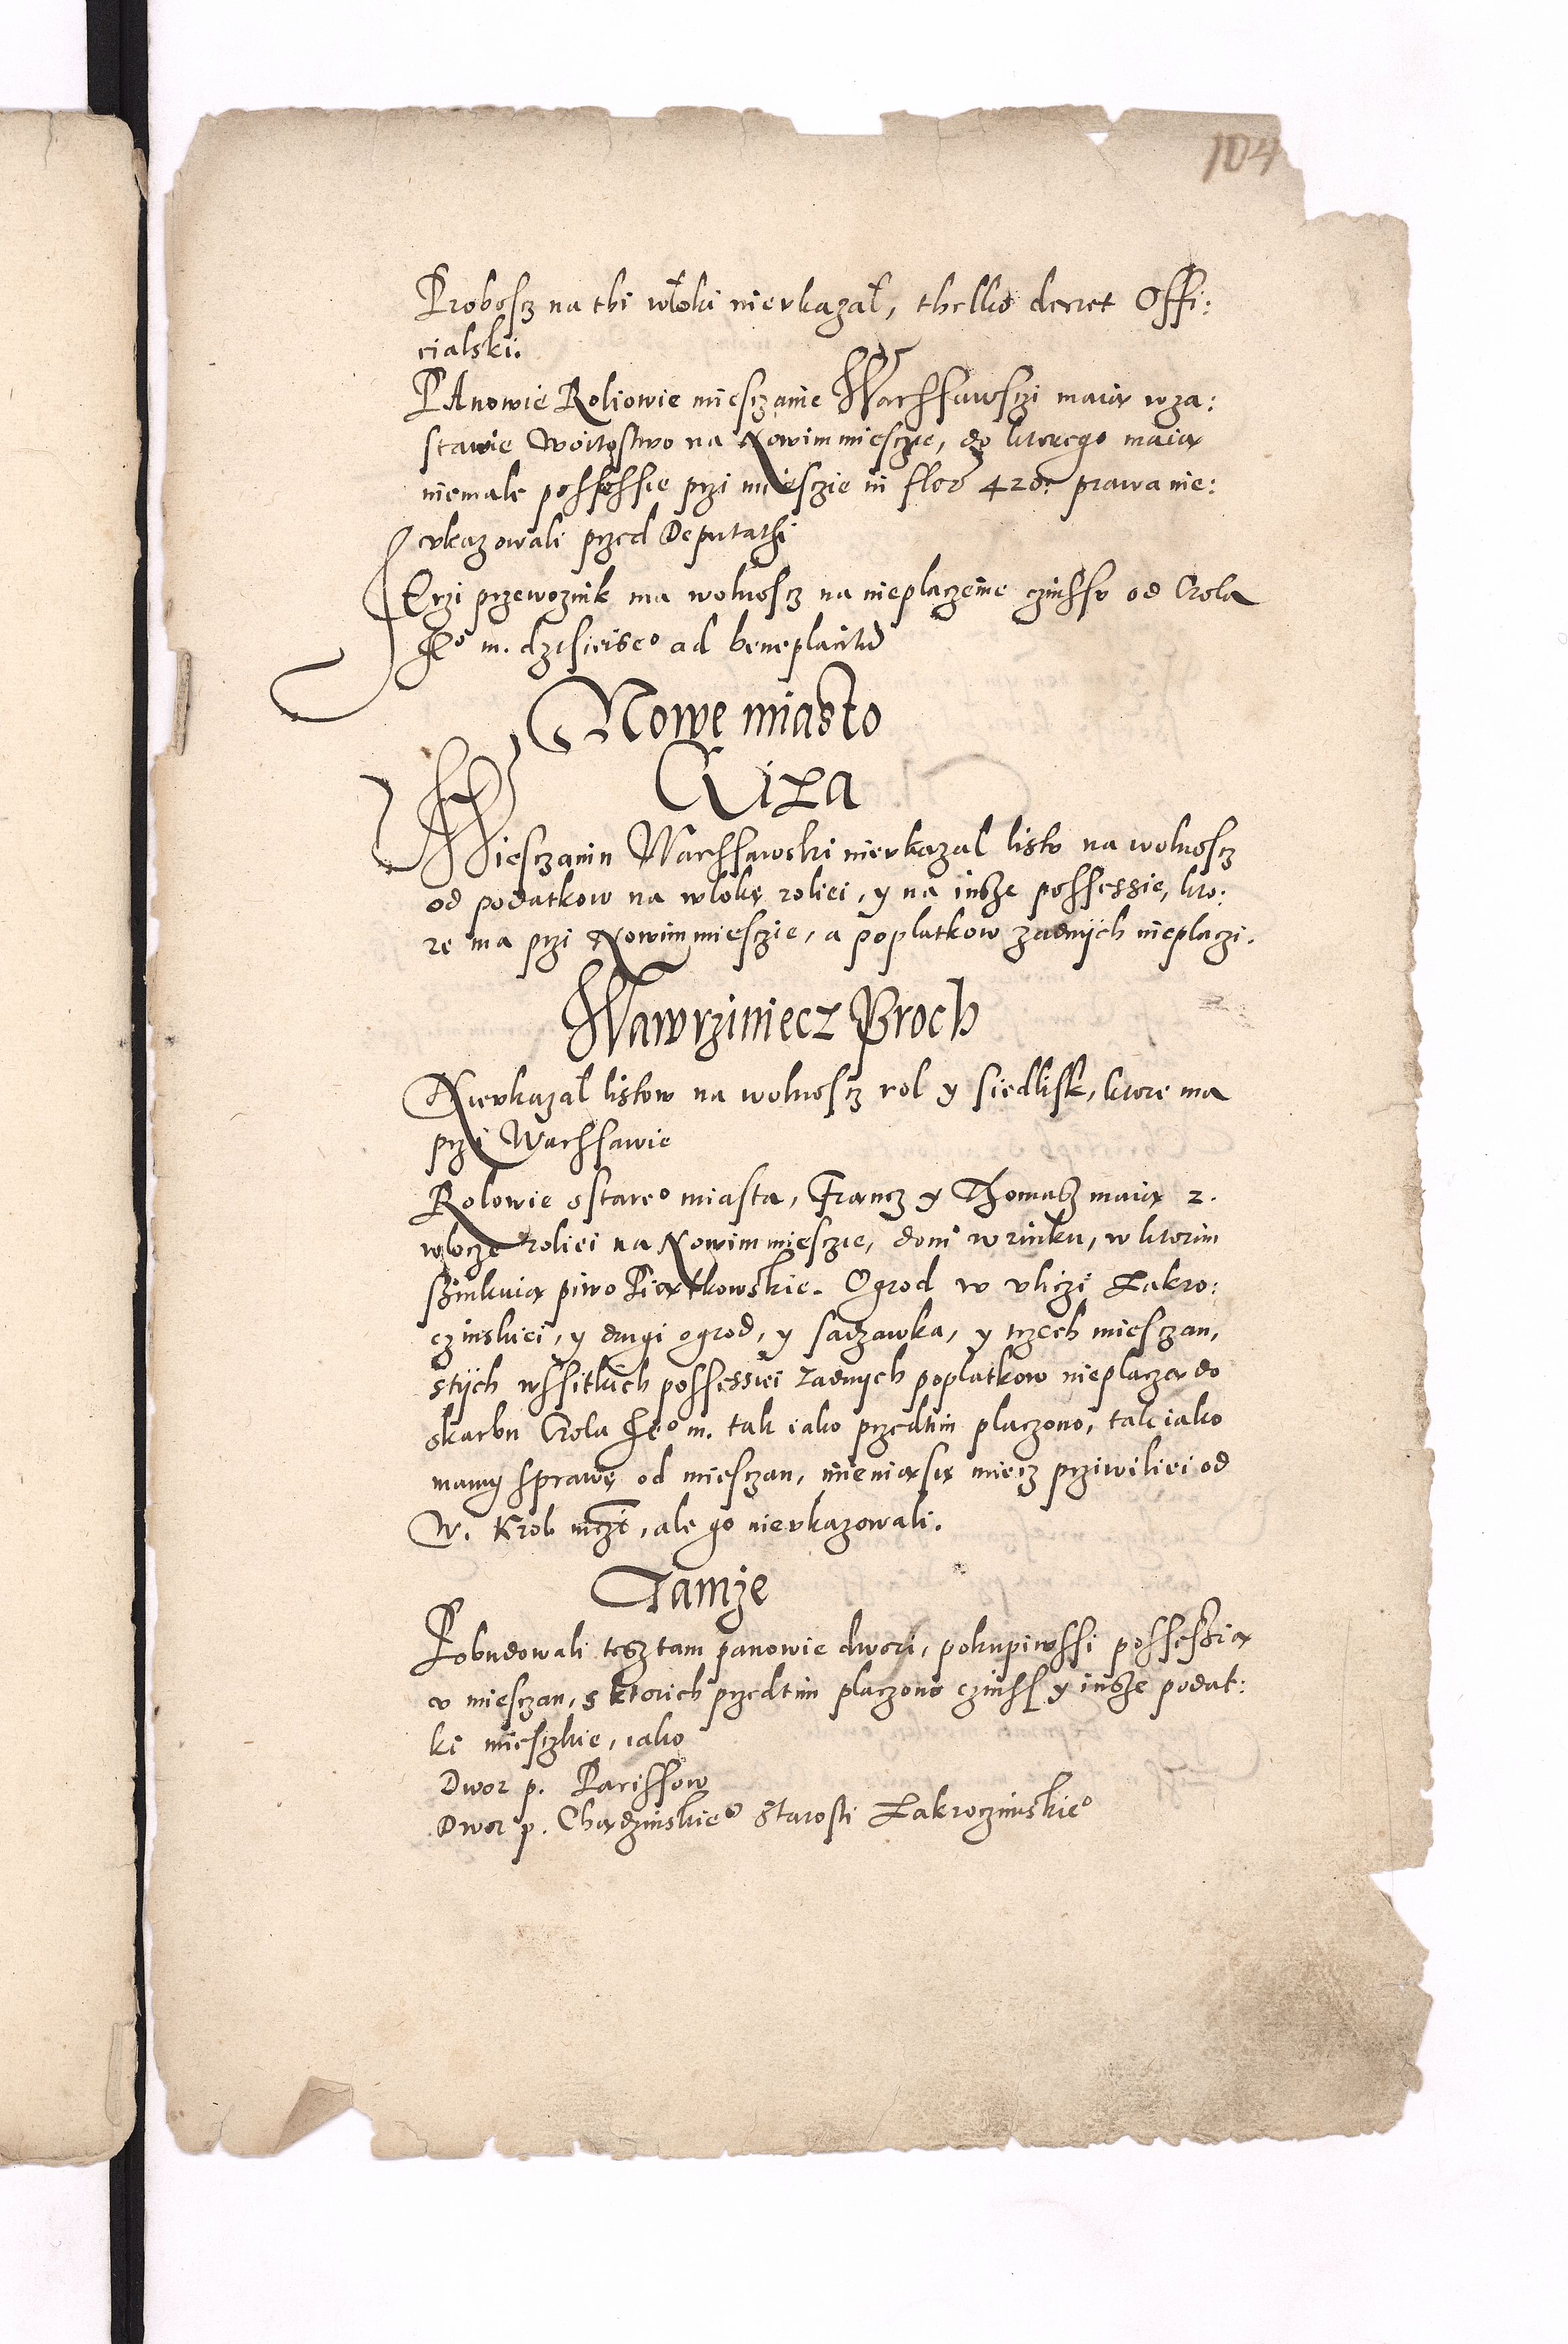 104
Proboscz na thi włoki nieukazał, thelko decret Offi:
cialski.
PAnowie Roliowie miesczanie Warssawsczi maią wza:
stawie Woitostwo na Nowim miesczie, do ktorego maią
niemale possessie przi miesczie in flor 420. prawa nie:
ukazowali przed Deputathi
Jerzi przewoznik ma wolnoscz na nieplaczenie czinssu od Crola
Je° m. dzisieise° ad beneplacitu
Nowe miasto
Giza
Miesczanin Warssawski nieukazal listu na wolnoscz
od podatkow na wlokę roliei, y na insze possessie, kto:
re ma przi Nowim miesczie, a poplatkow zadnych nieplaczi.
Wawrziniecz Broch
Nieukazal listow na wolnoscz rol y siedlisk, ktore ma
przi Warssawie
Rolowie s stare° miasta, Francz y Thomasz maią 2.
wlocze roliei na Nowim miesczie, dom w rinku, w ktorim
szinkuią piwo Piątkowskie. Ogrod w uliczi Zakro:
czinskiei, y drugi ogrod, y sadzawka, y trzech miesczan,
stych wssitkich possessiei zadnych poplatkow nieplaczą do
skarbu Crola Je° m. tak iako przedtim placzono, tak iako
mamy sprawę od miesczan, mieniąsię miecz prziwiliei od
W. Krol mczi, ale go nieukazowali.
Tamże
Pobudowali tesz tam panowie dwori, pokupiwssi possessią
u miesczan, s ktorich przedtim placzono czinss y insze podat:
ki miesczkie, iako
Dwor p. Parissow
Dwor p. Chądzinskie° Starosti Zakroczimskie°